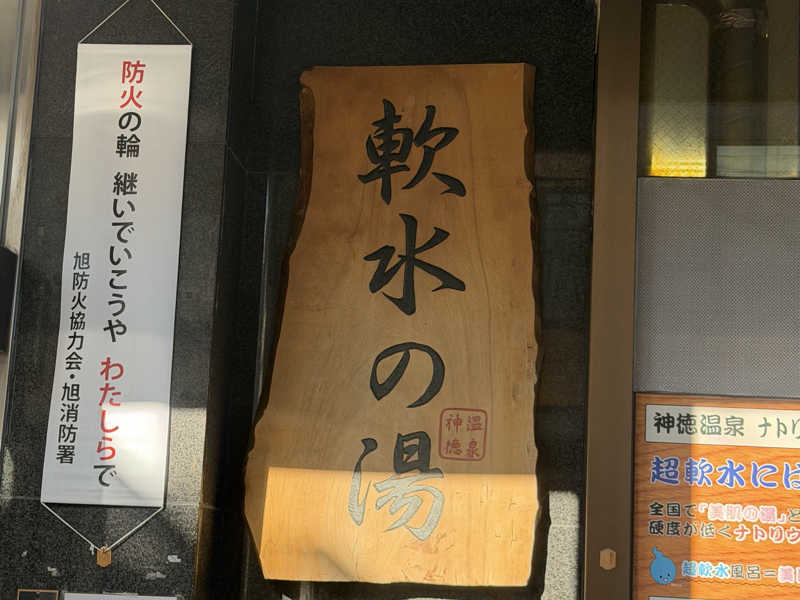 防火の輪 継いでいこうや わたしらで
旭防火協力会・旭消防署
軟水の湯
神徳温泉
神徳温泉 ナトリ
超軟水には
全国で「美肌の湯」と
硬度が低くナトリウ
超軟水風呂=美肌